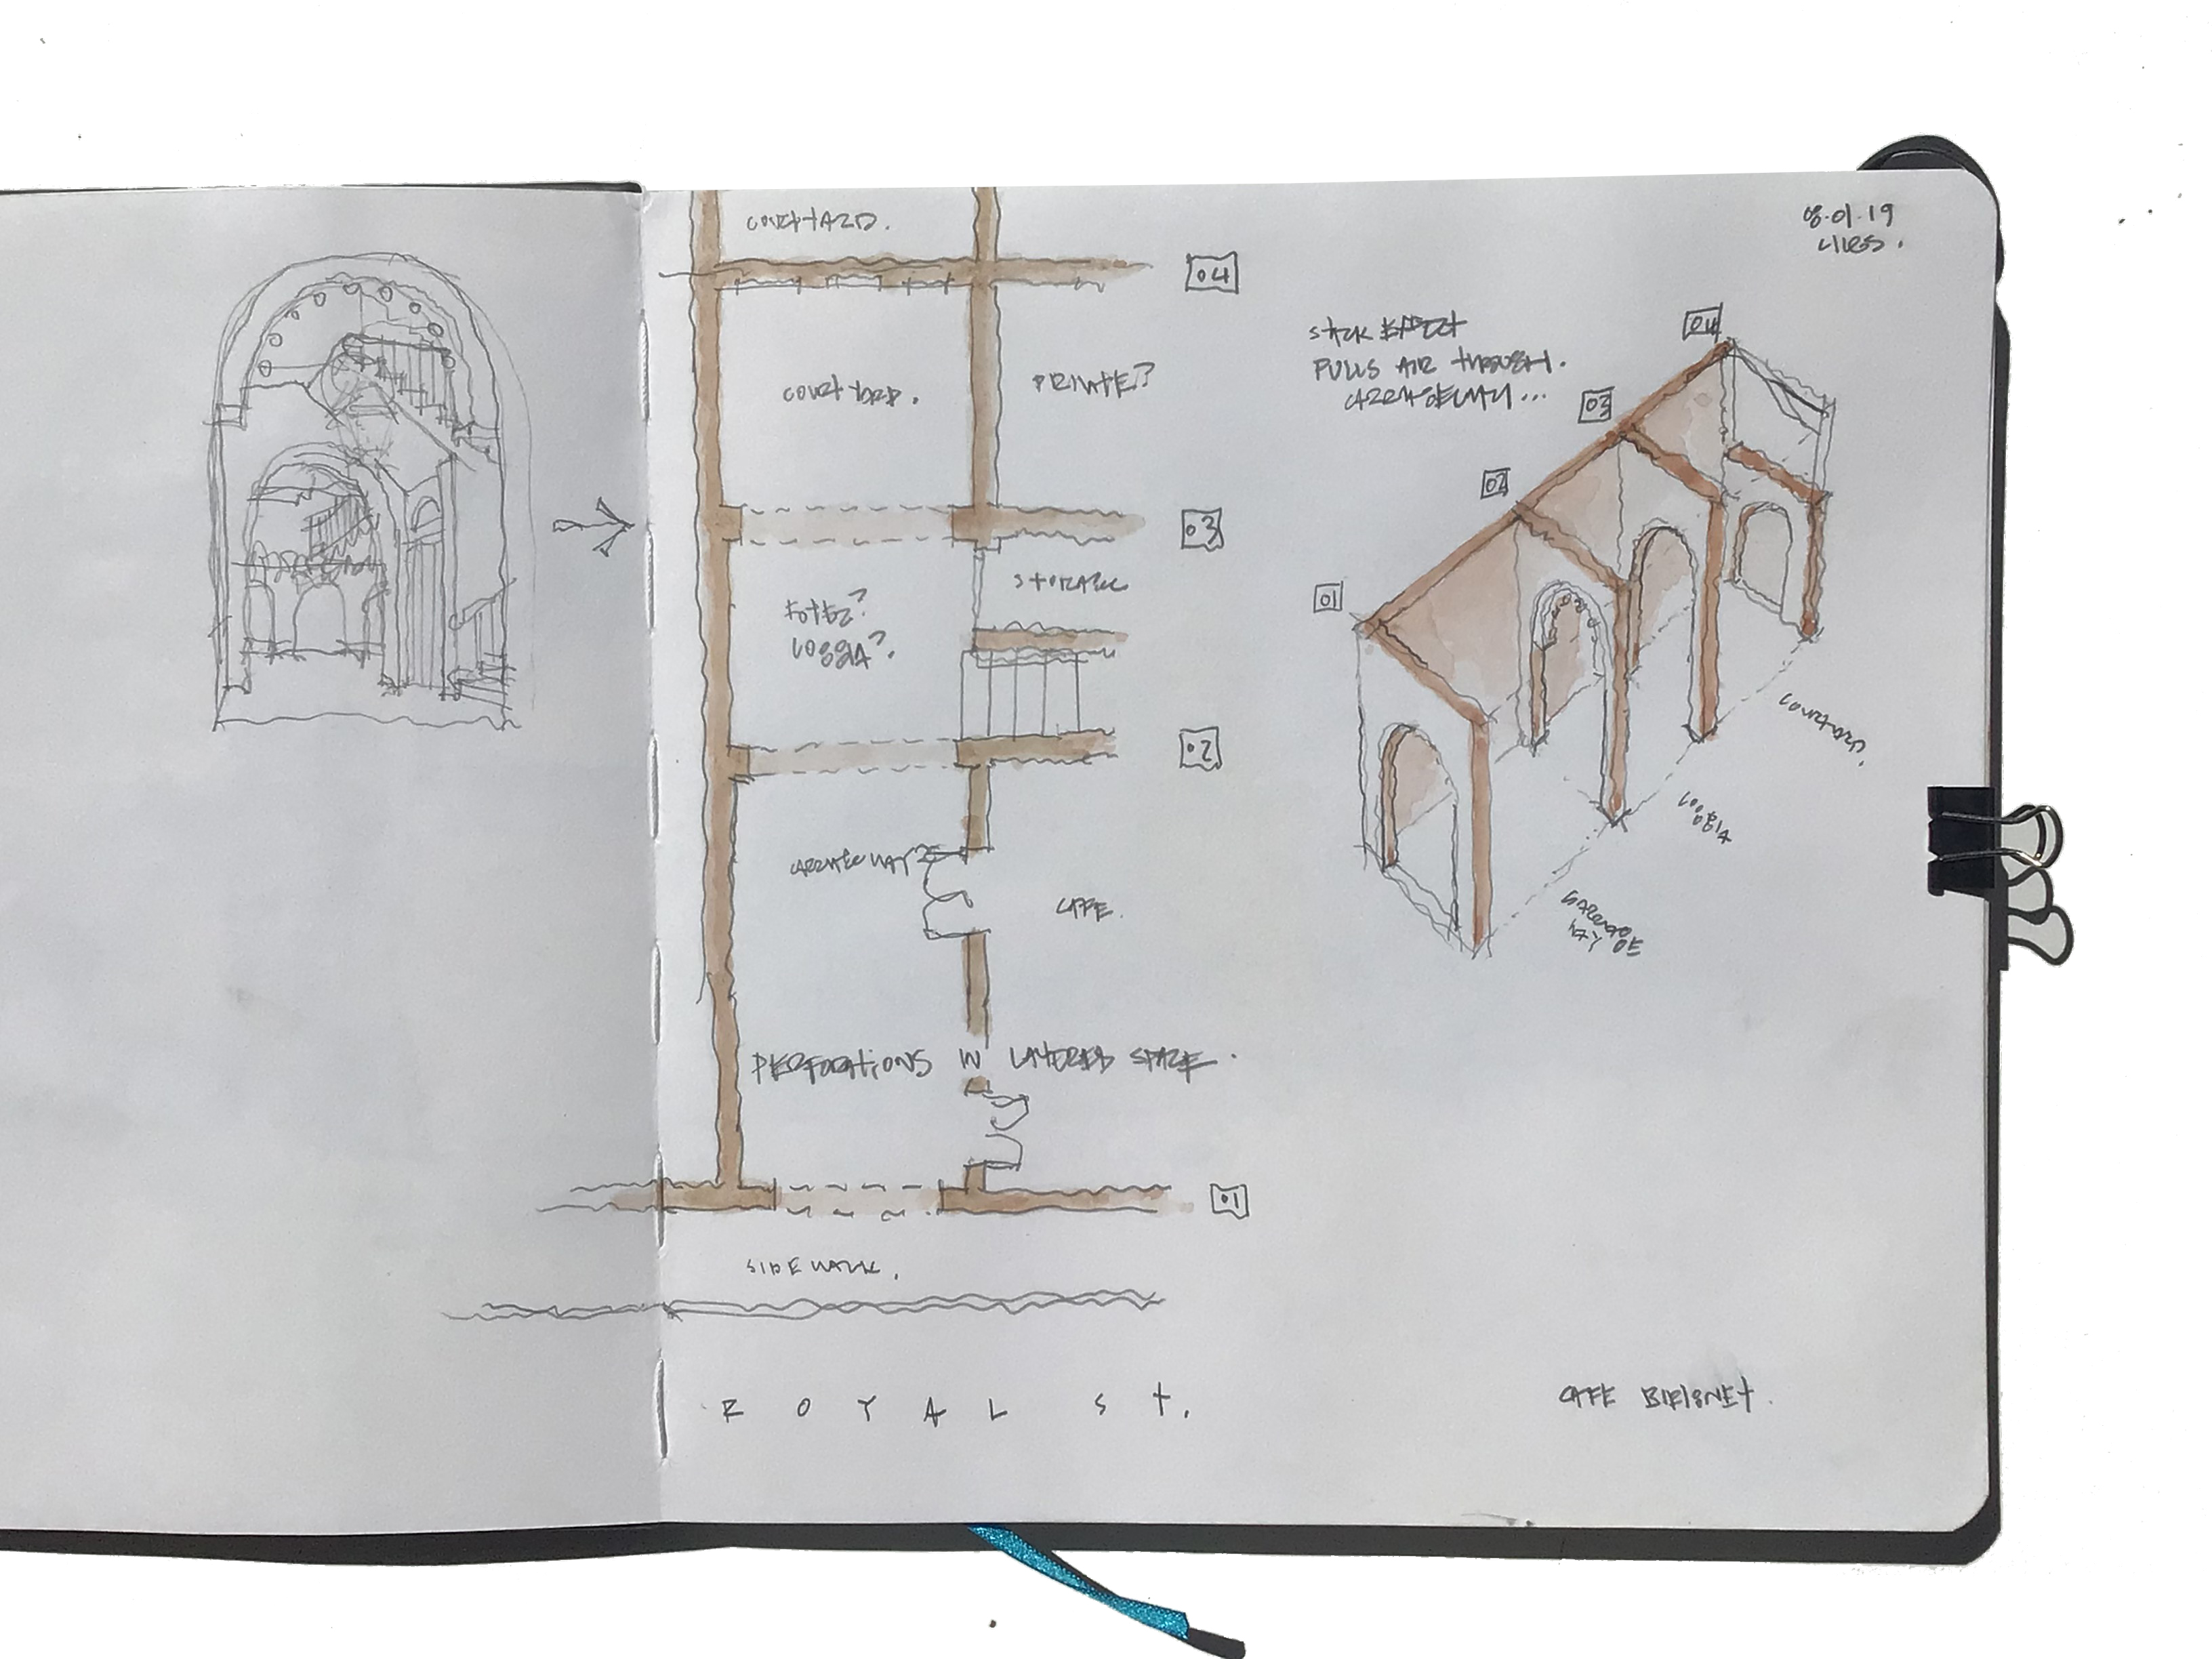 COURTYARD.
04
COURTYARD.
PRIVATE?
03
STORAGE
FOYER?
LOGGIA?
02
CARRIAGEWAY
CAFE.
PERFORATIONS IN LAYERED SPACE.
01
SIDEWALK.
ROYAL ST.
08.01.19
STACK EFFECT
PULLS AIR THROUGH.
CARRIAGEWAY...
04
03
02
01
COURTYARD.
LOGGIA
CAFE BEIGNET.